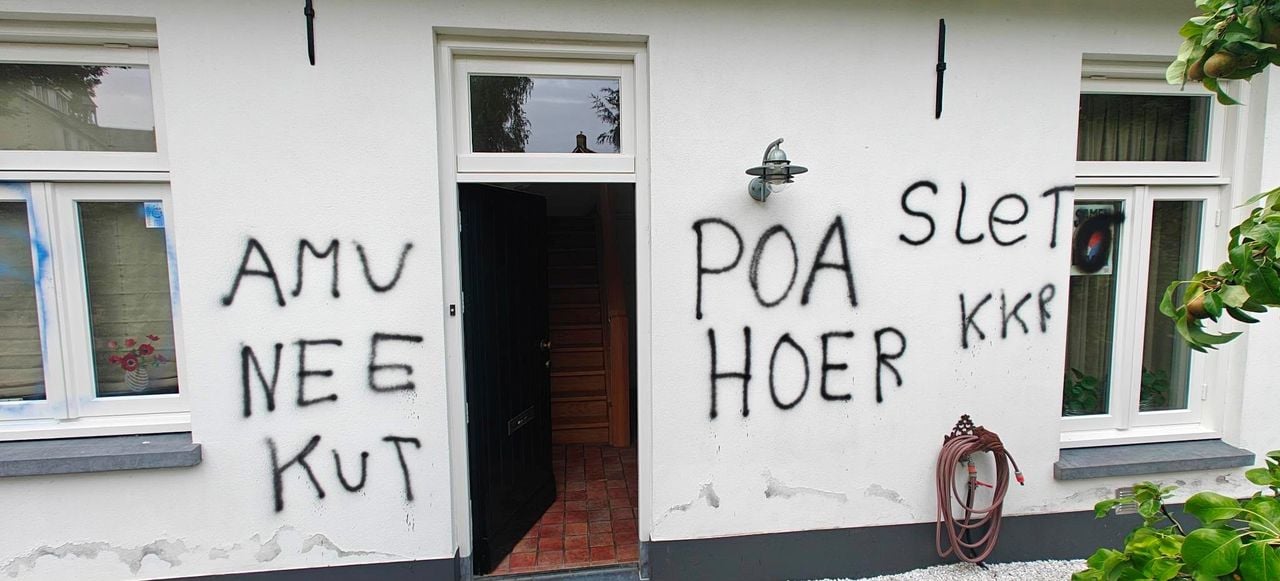 AMV
NEE
KUT
POA
HOER
SLeT
KKR